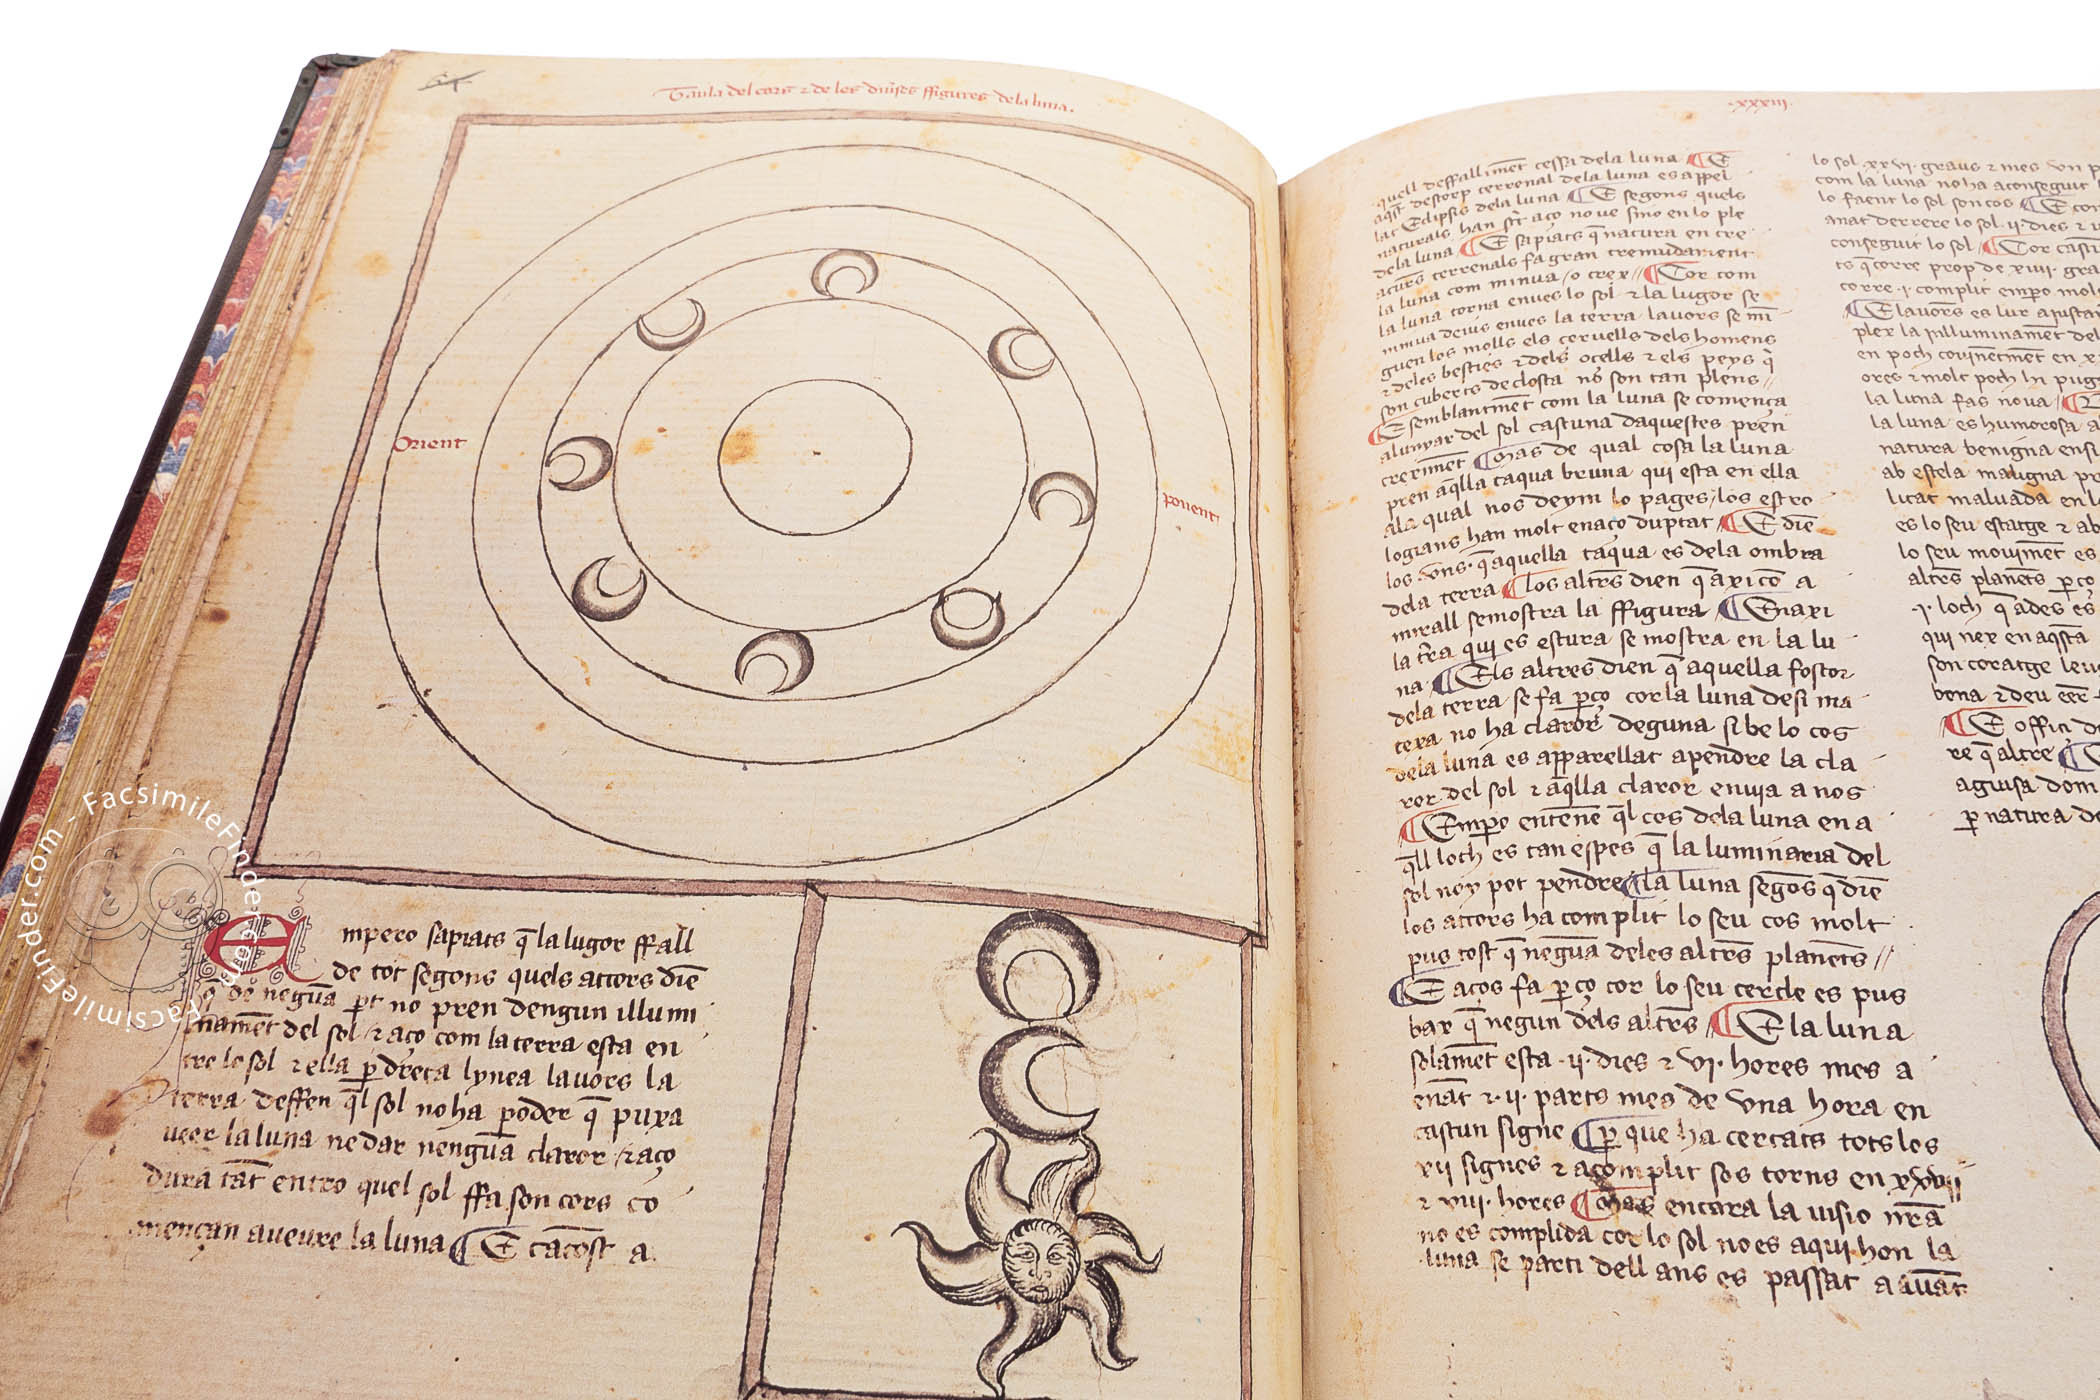 Taula del cors ⁊ de les diuˀses ffigures de la luna.
Orient
ponent
Empero sapiats q̄ la lugor ffall
de tot segons quels actors diē
q̄ de negūa pˀt no pren dengun illumi
namēt del sol / ⁊ aço com la terra esta en
tre lo sol ⁊ ella ꝑ dreta lynea lauors la
terra deffen q̄l sol no ha poder q̄ puxa
ueer la luna ne dar nengūa claror / ⁊ aço
dura tāt entro quel sol ffa son cors co
mençan aueure la luna ¶ E cācost a
.xxxiii.
quell deffallimēt cessa dela luna ¶ E
aq̄st destorp terrenal dela luna es appel
lat Eclipsis dela luna ¶ E segons quels
naturals han sc̄t aço no ue sino en lo ple
dela luna ¶ E sapiats q̄ natura en cre
atures terrenals fa gran tremudament
la luna com minua / o crex // ¶ Cor com
la luna torna enues lo sol ⁊ la lugor se
minua deius enues la terra lauors se mi
guen los molls els ceruells dels homens
⁊ deles besties ⁊ dels ocells ⁊ els peys q̄
son cuberts de closta no son tan plens //
¶ E semblantmēt com la luna se comença
alunyar del sol castuna daquestes pren
creximēt ¶ Mas de qual cosa la luna
pren aq̄lla taqua bruna qui esta en ella
ala qual nos deym lo pages / los estro
logians han molt en aço duptat ¶ E diē
los .vns. q̄ aquella taqua es dela ombra
dela terra ¶ los altrēs dien q̄ axi com a
mirall se mostra la ffigura ¶ E naxi
la tr̄ra qui es escura se mostra en la lu
na ¶ Els altres dien q̄ aquella foscor
dela terra se fa ꝑ ço cor la luna de si ma
texa no ha claror deguna si be lo cos
dela luna es apparellat apendre la cla
ror del sol ⁊ aq̄lla claror enuia a nos
¶ Empo entēne q̄l cos dela luna en a
q̄ll loch es tan espes q̄ la luminaria del
sol noy pot pendre ¶ la luna segōs q̄ diē
los actors ha complit lo seu cos molt
pus tost q̄ negūa deles altrēs planēts //
¶ E aços fa ꝑ ço cor lo seu cercle es pus
bax q̄ negun dels altrēs ¶ E la luna
solamēt esta .ii. dies ⁊ vi. hores mes a
enāt ⁊ .ii. parts mes de vna hora en
castun signe ¶ ꝑ que ha cercats tots los
xii signes ⁊ acomplit sos torns en xxvii
⁊ viii. hores ¶ Mas encara la uisio nr̄a
no es complida cor lo sol no es aqui hon la
luna se parti dell ans es passat a auāt
lo sol .xxvi. graus ⁊ mes vn p
com la luna no ha aconseguit
lo faent lo sol son cos ¶ E con
anat derrere lo sol .ii. dies ⁊ u
conseguit lo sol ¶ Cor casti
ts q̄ corre prop de xiiii. gra
corre .i. complit empo mol
¶ E lauors es lur aiusta
pler la inlluminamēt del
en poch couinētmēt en x
ores ⁊ molt poch hi pug
la luna fas noua ¶
la luna es humorosa a
natura benigna ensi
ab estela maligna pr
licat maluada en l
es lo seu estatge ⁊ ab
lo seu mouimēt es
altrēs planēts ꝑ ço
.i. loch q̄ ades es
qui nex en aq̄sta
son coratge leu
bona ⁊ deu eēr
¶ E offici d
re q̄ altre ¶
aguisa dom
ꝑ natura de
FacsimileFinder.com - FacsimileFinder.com